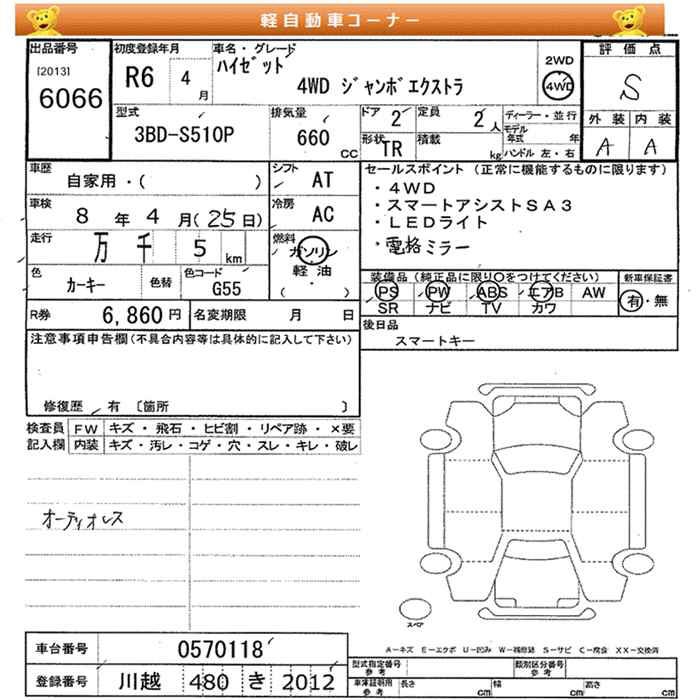 軽自動車コーナー
出品番号
[2013]
6066
初度登録年月
R6 4 月
車名・グレード
ハイゼット
4WD ジャンボエクストラ
2WD
4WD
評価点
S
外装 内装
A A
型式
3BD-S510P
排気量
660 CC
ドア 2
定員 2 人
形状 TR
積載 kg
ディーラー・並行
モデル年式 年
ハンドル 左・右
車歴
自家用・( )
シフト AT
車検 8 年 4 月(25日)
冷房 AC
走行 万 千 5 km
燃料
ガソリン
軽油
( ・ )
色 カーキー 色替
色コード G55
セールスポイント (正常に機能するものに限ります)
・4WD
・スマートアシストSA3
・LEDライト
・電格ミラー
装備品(純正品に限り○をつけてください)
PS PW ABS エアB AW
SR ナビ TV カワ
新車保証書
有・無
R券 6,860円
名変期限 月 日
後日品
スマートキー
注意事項申告欄(不具合内容等は具体的に記入して下さい)
修復歴 有 〔箇所 〕
検査員記入欄
FW キズ・飛石・ヒビ割・リペア跡・×要
内装 キズ・汚レ・コゲ・穴・スレ・キレ・破レ
オーディオレス
スペア
A－キズ E－エクボ U－凹み W－補修跡 S－サビ C－腐食 XX－交換済
車台番号 0570118
登録番号 川越 480 き 2012
型式指定番号 参考
類別区分番号 参考
車庫証明用 参考
長さ cm 幅 cm 高さ cm